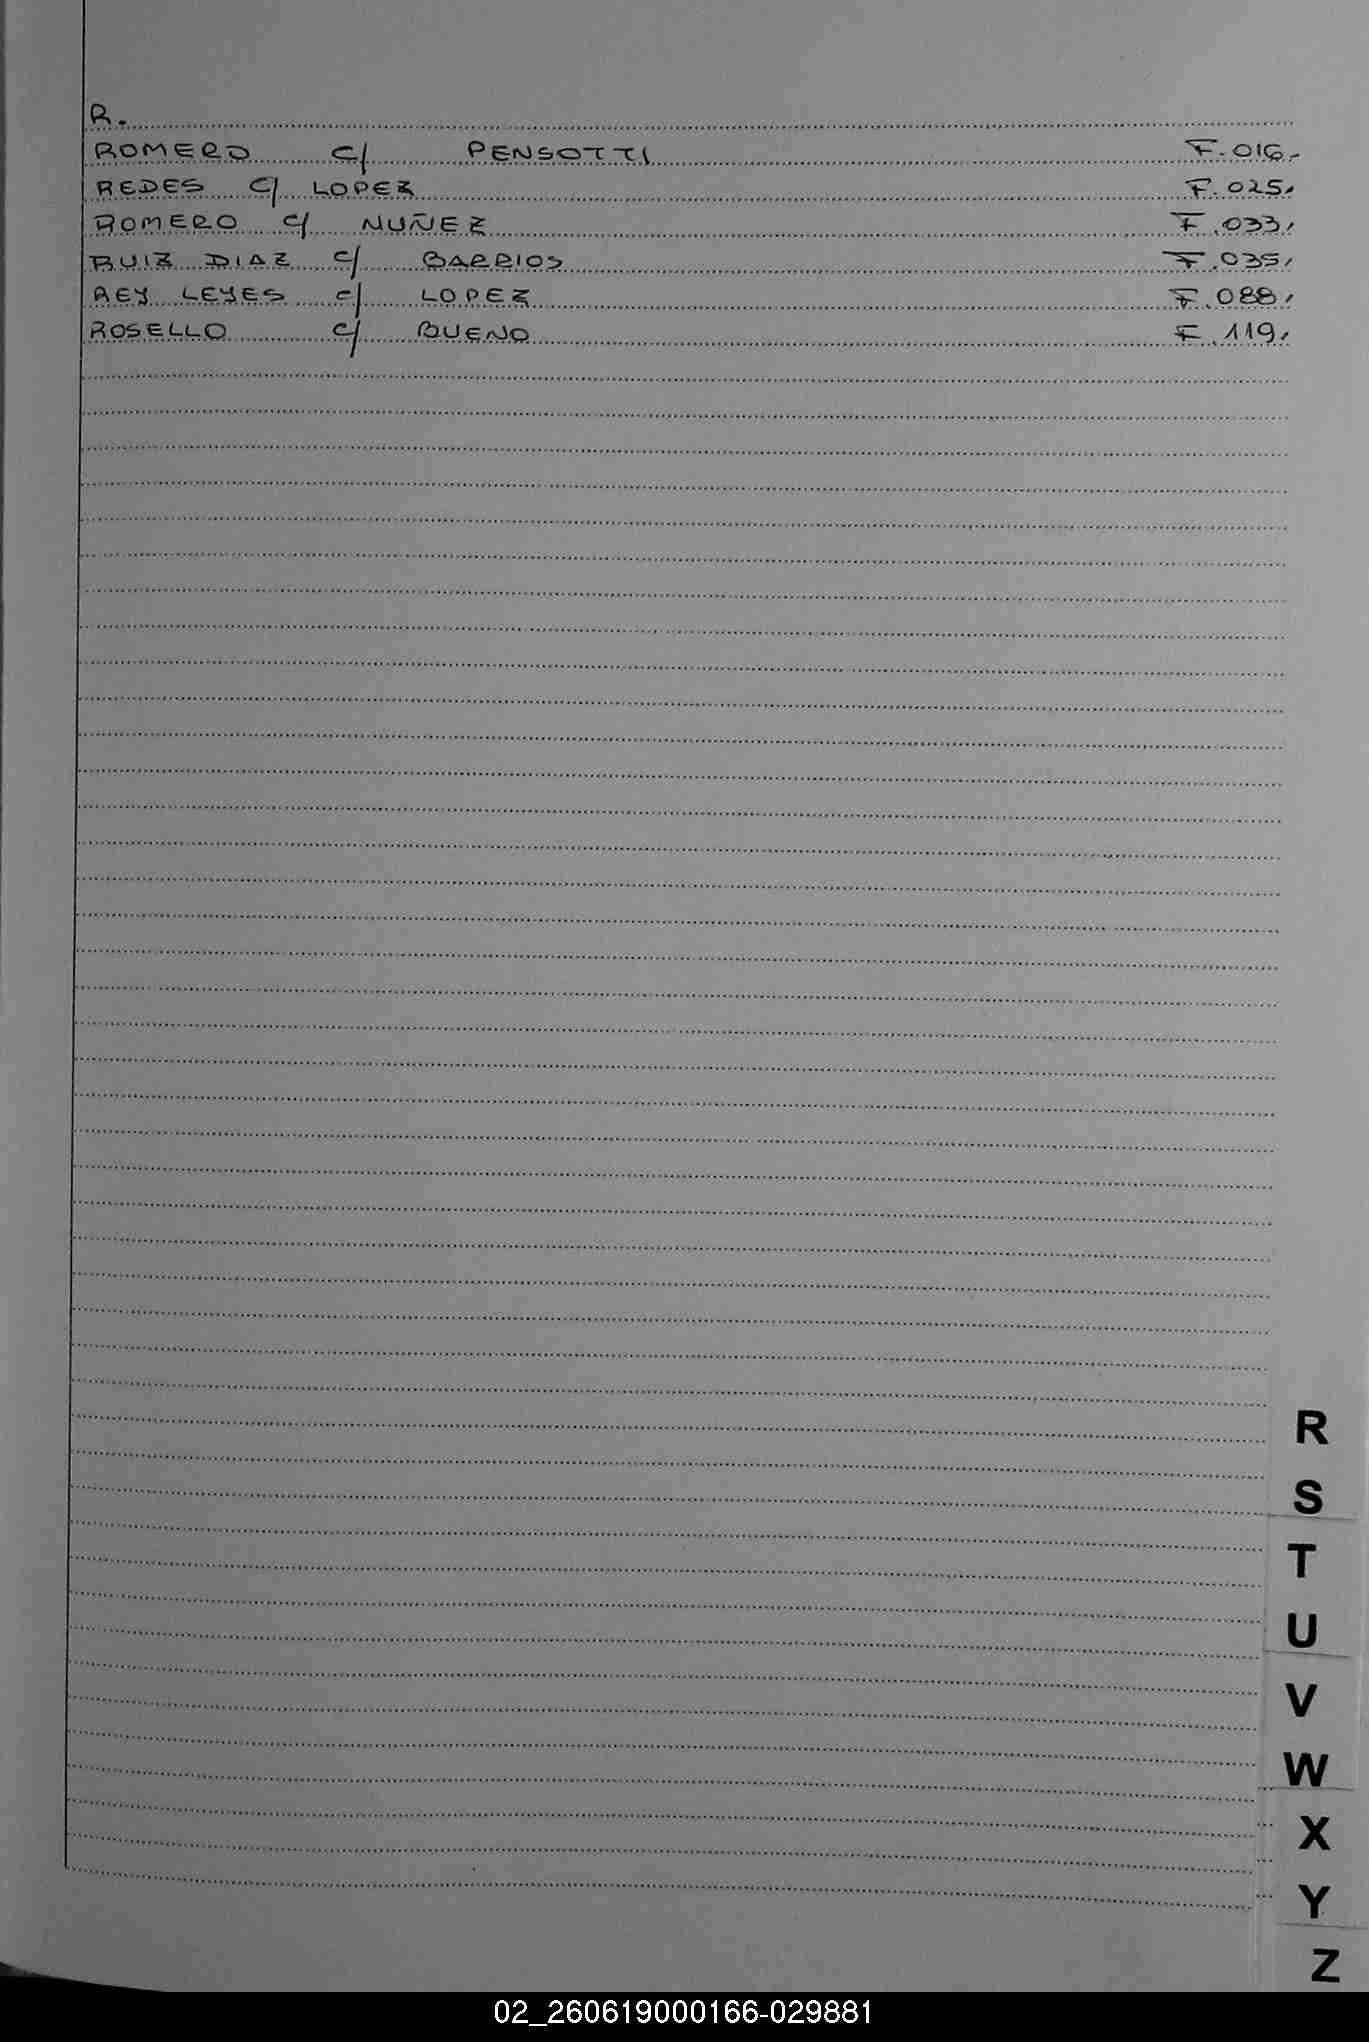 R.
ROMERO c/ PENSOTTI F.016.
REDES c/ LOPEZ F.025.
ROMERO c/ NUÑEZ F.033.
RUIZ DIAZ c/ BARRIOS F.035.
REY LEYES c/ LOPEZ F.088.
ROSELLO c/ BUENO F.119.
R
S
T
U
V
W
X
Y
Z
02_260619000166-029881